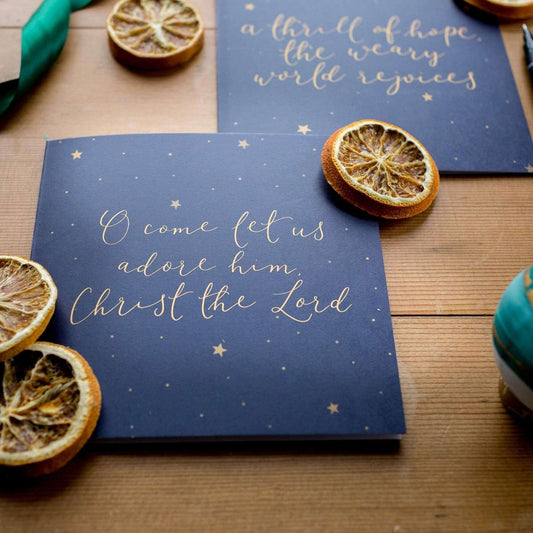 a thrill of hope,
the weary
world rejoices
O come let us
adore him,
Christ the Lord